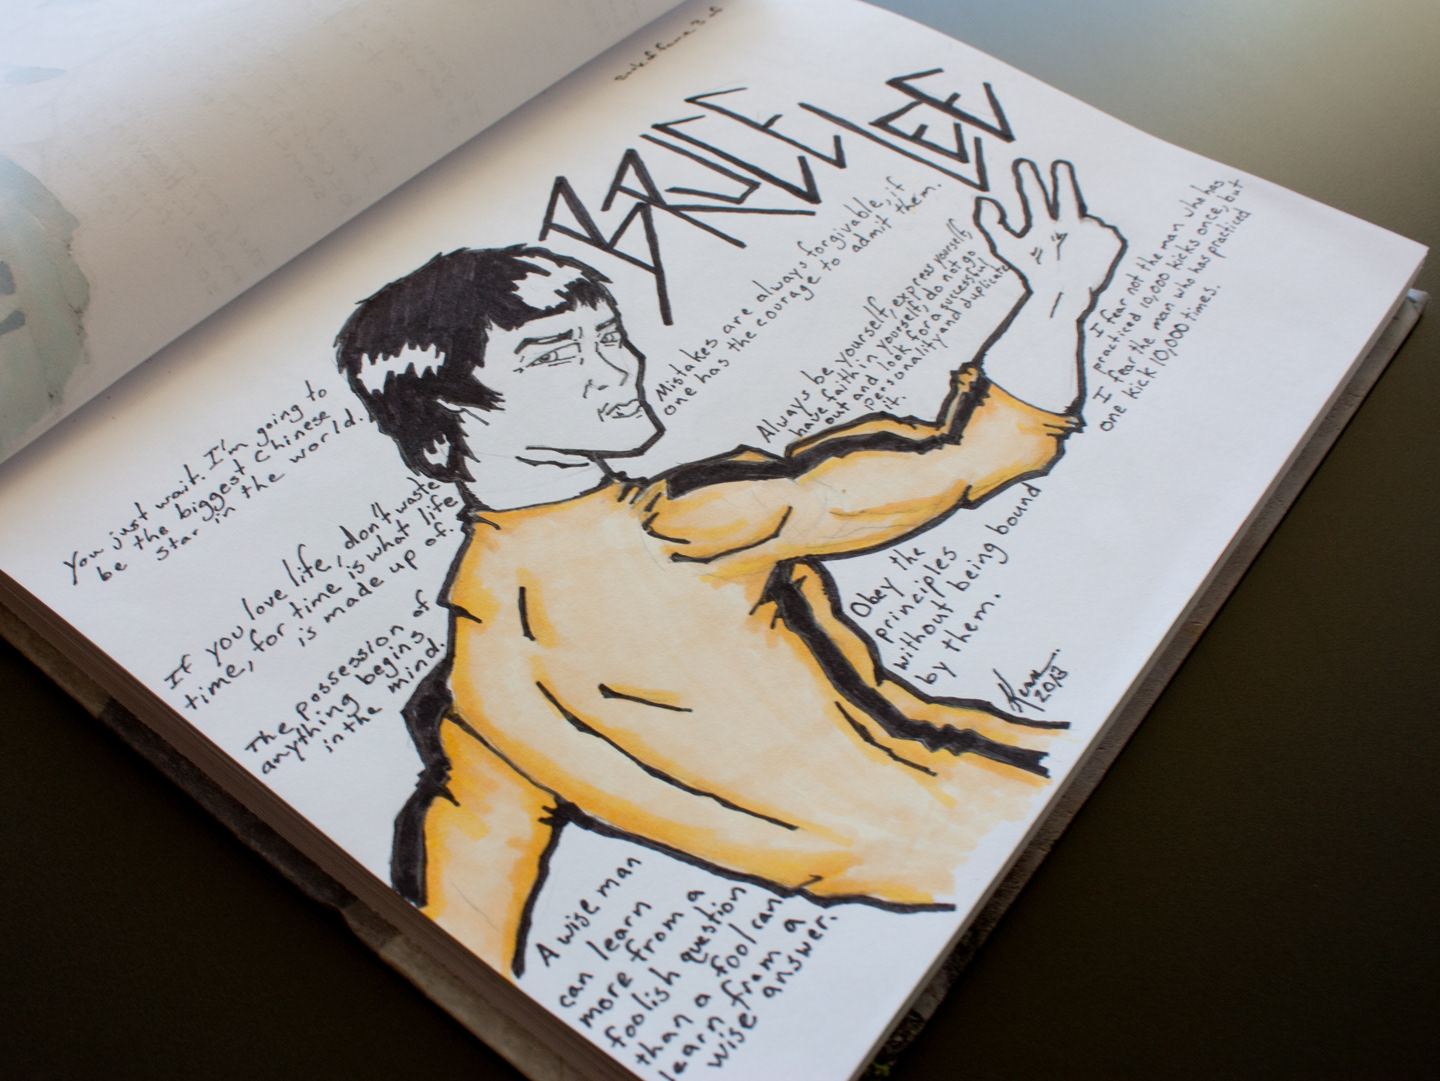 BRUCE LEE
Mistakes are always forgivable, if
one has the courage to admit them.
Always be yourself, express yourself,
have faith in yourself, do not go
out and look for a successful
personality and duplicate
it.
I fear not the man who has
practiced 10,000 kicks once, but
I fear the man who has practiced
one kick 10,000 times.
You just wait. I'm going to
be the biggest Chinese
Star in the world.
If you love life, don't waste
time, for time is what life
is made up of.
The possession of
anything begins
in the mind.
Obey the
principles
without being bound
by them.
2013
A wise man
can learn
more from a
foolish question
than a fool can
learn from a
wise answer.